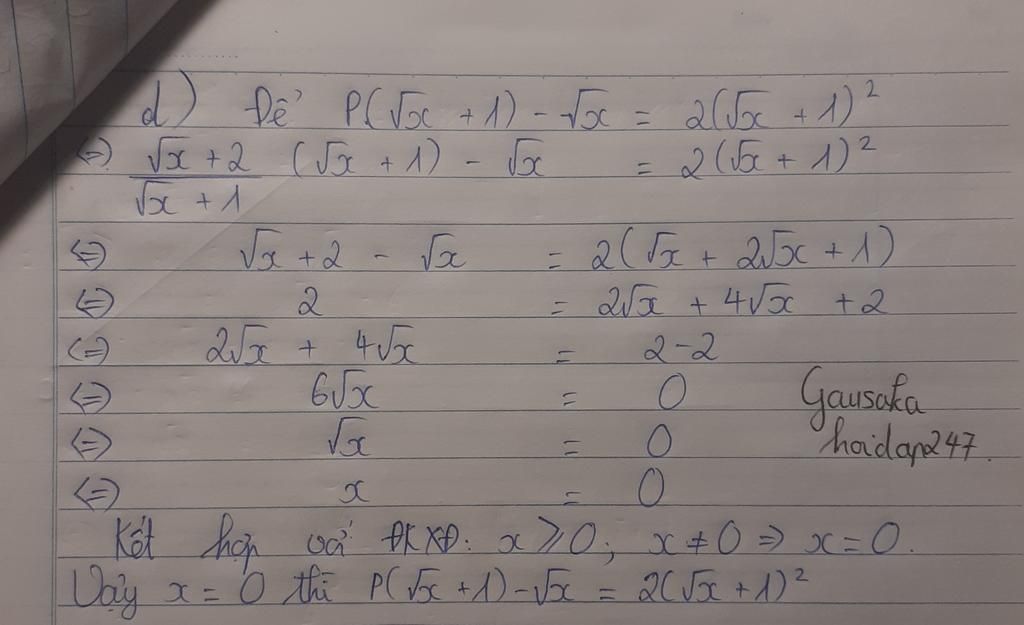 d) Để P(√x + 1) - √x = 2(√x + 1)²
⇔ (√x + 2)/(√x + 1) (√x + 1) - √x = 2(√x + 1)²
⇔ √x + 2 - √x = 2(√x + 2√x + 1)
⇔ 2 = 2√x + 4√x + 2
⇔ 2√x + 4√x = 2-2
⇔ 6√x = 0
⇔ √x = 0
⇔ x = 0
Gausaka
hoidap247.
Kết hợp với ĐKXĐ: x ⩾ 0; x ≠ 0 ⇒ x = 0.
Vậy x = 0 thì P(√x + 1) - √x = 2(√x + 1)²